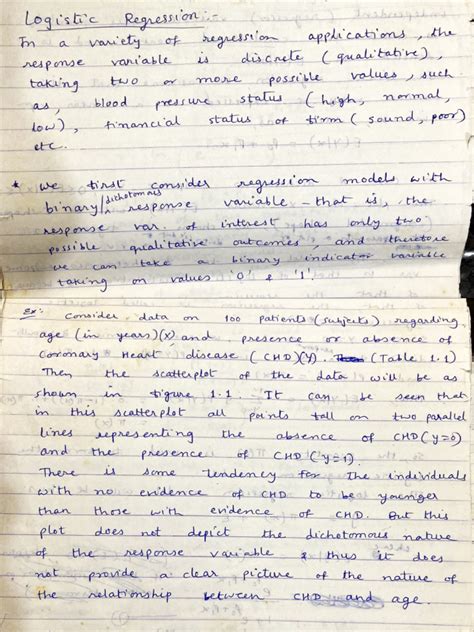 Logistic Regression:-
In a variety of regression applications, the
response variable is discrete (qualitative),
taking two or more possible values, such
as, blood pressure status (high, normal,
low), financial status of firm (sound, poor)
etc.
* We first consider regression models with
binary/dichotomous response variable - that is, the
response var. of interest has only two
possible qualitative outcomes, and therefore
we can take a binary indicator variable
taking on values '0' & '1'.
Ex: Consider data on 100 patients (subjects) regarding
age (in years)(x) and presence or absence of
Coronary Heart disease (CHD)(Y). (Table 1.1)
Then the scatterplot of the data will be as
shown in figure 1.1. It can be seen that
in this scatterplot all points fall on two parallel
lines representing the absence of CHD (y=0)
and the presence of CHD (y=1).
There is some tendency for the individuals
with no evidence of CHD to be younger
than those with evidence of CHD. But this
plot does not depict the dichotomous nature
of the response variable & thus it does
not provide a clear picture of the nature of
the relationship between CHD and age.